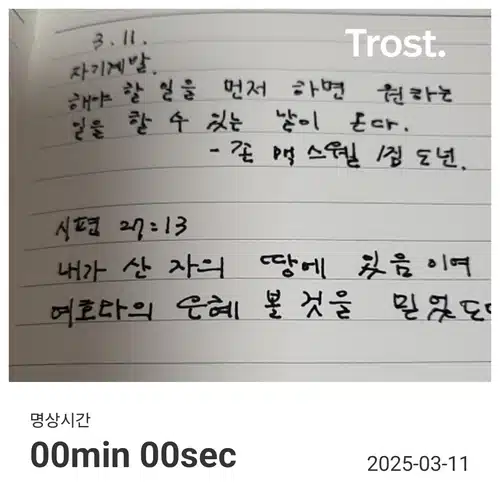 Trost.
3. 11.
자기계발.
해야 할 일을 먼저 하면 원하는
일을 할 수 있는 날이 온다.
- 존 맥스웰 /집 도년.
시편 27:13
내가 산 자의 땅에 있음이여
여호와의 은혜 볼 것을 믿었도다
명상시간
00min 00sec
2025-03-11